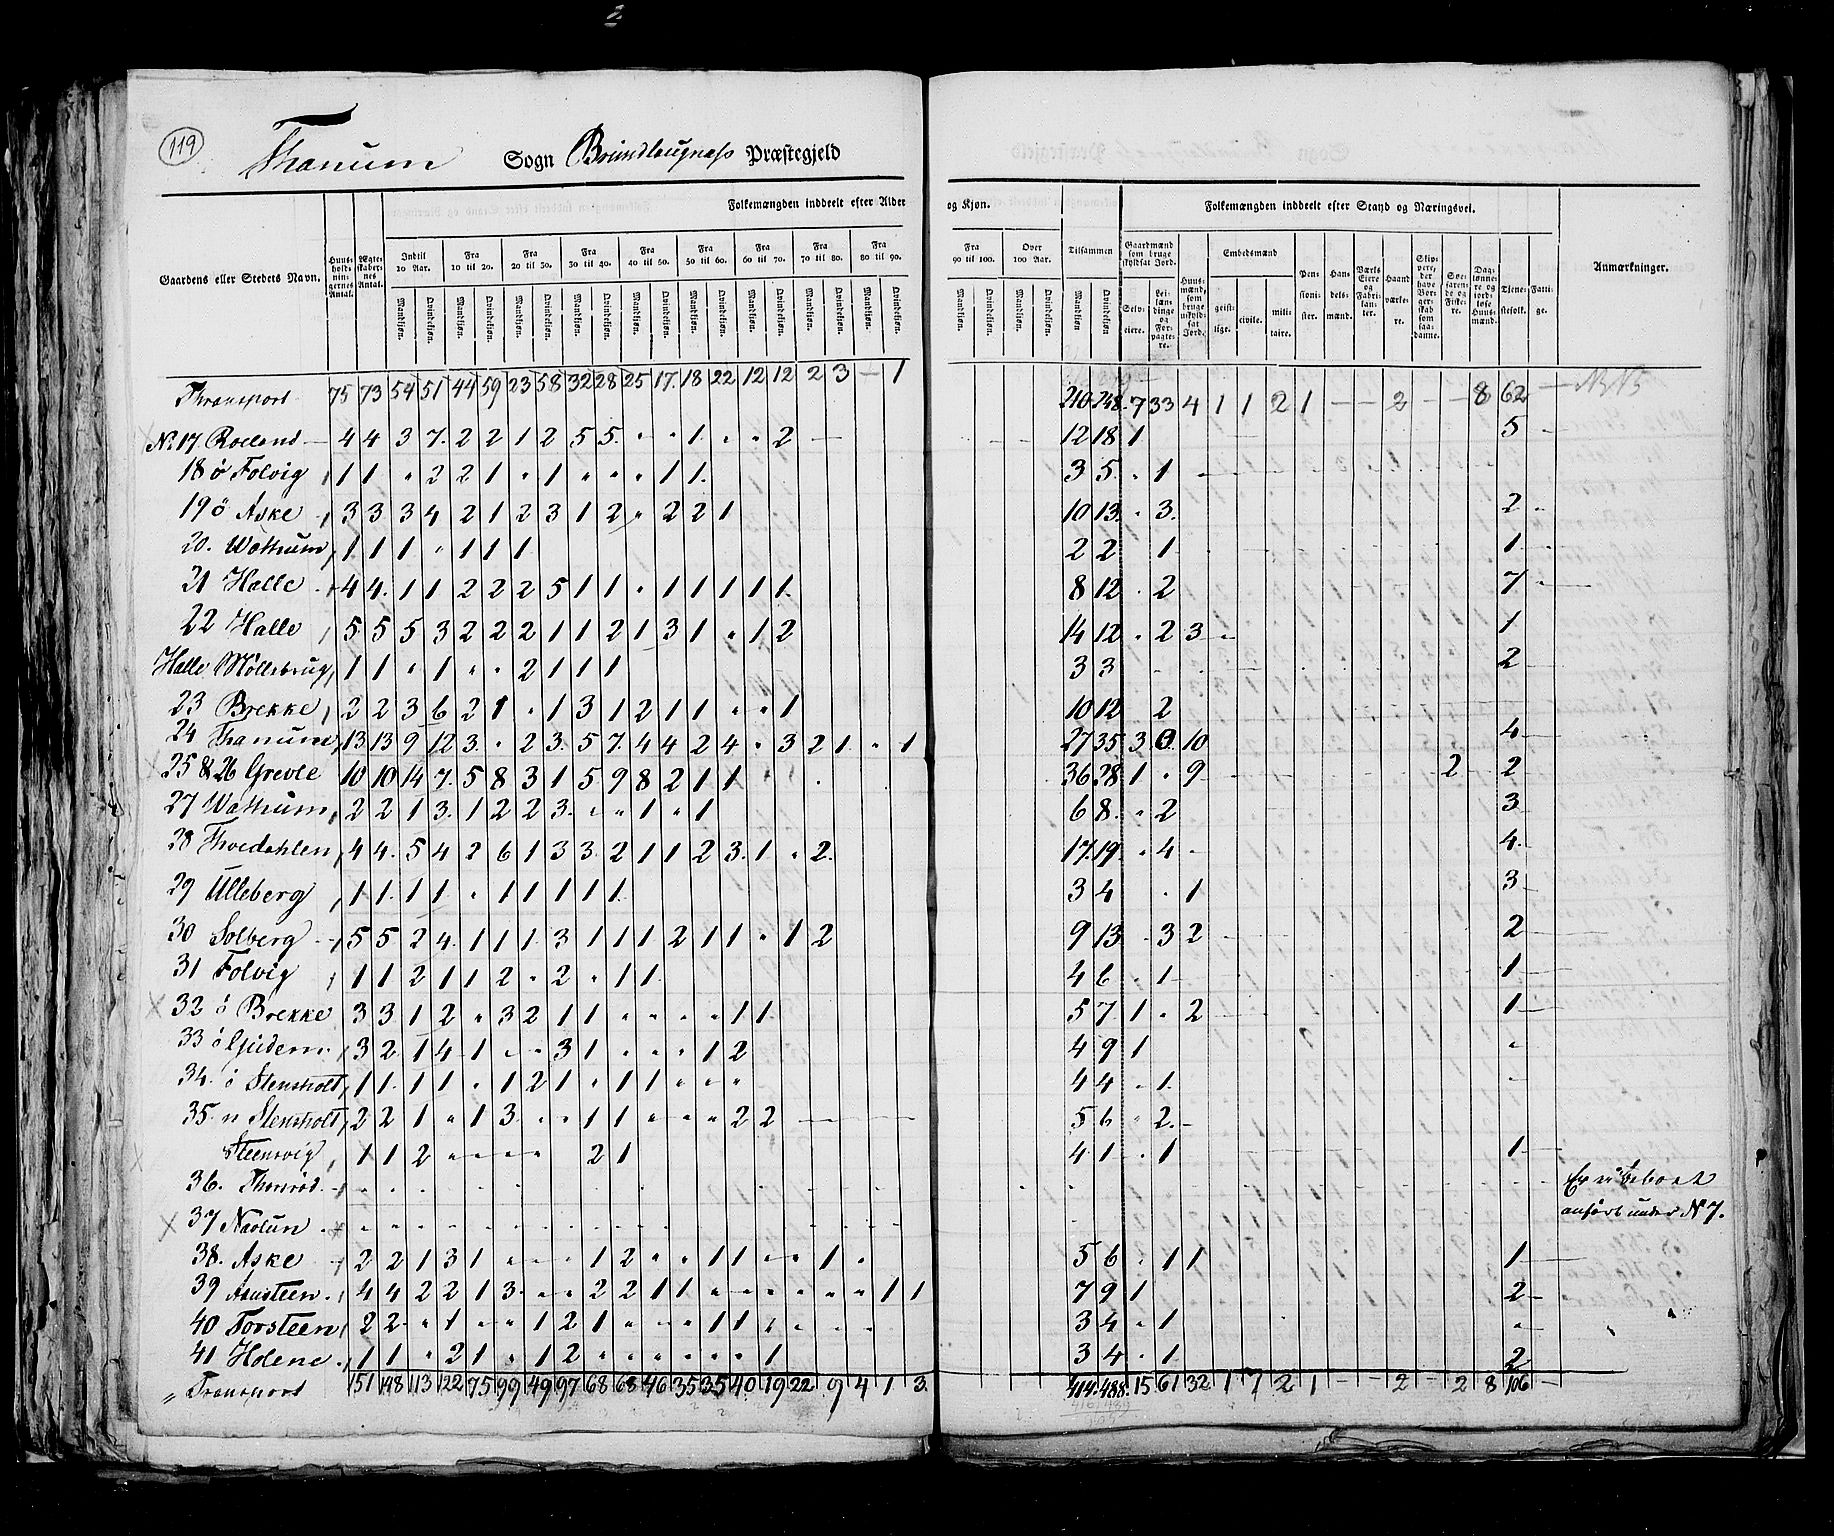 119
Thanum Sogn Brundlaugnæss Præstegjeld
Folkemængden inddeelt efter Alder og Kjøn. Folkemængden inddeelt efter Stand og Næringsvei.
Gaardens eller Stedets Navn. Huusholdningernes Antal. Ægteskabernes Antal. Indtil 10 Aar. Fra 10 til 20. Fra 20 til 30. Fra 30 til 40. Fra 40 til 50. Fra 60 til 70. Fra 70 til 80. Fra 80 til 90. Fra 90 til 100. Over 100 Aar. Tilsammen Gaardmænd som bruge skyldsat Jord. Huusmænd, som bruge uskyldsat Jord. Embedsmænd Pensionister. Handelsmænd. Værks Eiere og Fabrikanter. Haandværkere. Tjenestefolk. Fattige. Anmærkninger.
Mandkjøn. Qvindekjøn. Selveiere. Leilændinge og Forpagtere. geistlige. civile. militaire.
Transport 75 73 54 51 44 59 23 58 32 28 25 17. 18 22 12 12 2 3 — 1 210 248. 7 33 4 1 1 2 1 — — 2 — — 8 62
No 17 Roeland — 4 4 3 7. 2 2 1 2 5 5. " " 1. " " 2 — 12 18 1 5
18 ö Folvig 1 1 " 2 2 1 " 1 " " " 1 1. 3 5. " 1
19 ö Aske 3 3 3 4 2 1 2 3 1 2 " 2 2 1 10 13. " 3. 2
20. Wattrum 1 1 1 " 1 1 1 2 2 1 1
21 Halle 4 4. 1 1 2 2 2 5 1 1 " 1 1 1 1 1. 8 12 " 2 7
22 Halle 5 5 5 3 2 2 2 1 1 2 1 3 1 " 1 2 14 12 " 2 3 1
Halle Möllebrug 1 1 " 1 " " 2 1 1 1 3 3 2
23 Brekke 2 2 3 6 2 1 " 1 3 1 2 1 1 " " 1 10 12 2
24 Thanum 13 13 9 12 3. " 2 3. 5 7. 4 4 2 4 " 3 2 1 " 1 27 35 3 10 4
25 & 26 Grevle 10 10 14 7. 5 8 3 1 5 9 8 2 1 1 36 28 1 " 9 2 2
27 Wattrum 2 2 1 3. 1 2 2 3. " " 1 " 1 6 8. " 2 3
28 Thvedahlen 4 4. 5 4 2 6 1 3 3 2 1 1 2 3. 1 " 2. 17. 19. " 4 4.
29 Ulleberg 1 1. 1 1 " 1 1 1 1 1 3 4 " 1 3
30 Solberg 5 5 2 4. 1 1 1 3 1 1 1 2 1 1 " 1 2 9 13 3 2 2
31 Folvig 1 1 2 1 1 2 " 2 " 1 1. 4 6 " 1 1
32 ö Brekke 3 3 1 2 " 3 2 1 1 " " " " 1 1. 5 7 1 " 2 1
33 ö Guidem 3 2 1 4 1 " " 3 1 " " " 1 2 4 9 1
34. ö Stensholt 1 1. 1 1 " 1 2 1 " 1 1 " " " 4 4 " 1.
35. n Stensholt 2 2 1 " 1 3. " " 1 1 " " " 2 2 5 6 " 2.
Steensvig 1 1 2 " " " " 2 1 4 1 " 1 1
36. Thorröd
37 Naolun anført under N 7.
38. Aske 2 2 1 3 1 " " " 1 2 " " 1 1 " " 1 " 5 6 " 1 1 1
39 Aausteen 4 4 2 2 1 3 " " 2 2 1 1 " " " " " " 1 1 7 9 1 2
40 Torsteen 2 2 " 1 " " 1 2 1 " " " 1 1 3 4 " 1
41 Holene 1 1 " 2 1 " 1 2 " " " " " " 1 3 4 " 1 2
Transport 151 148 113 122 75 99 49 97 68 68 46 35 35 40 19 22 9 4 1 3. 414. 488. 15 61 32 1 7 2 1 — — 2 — 2 8 106